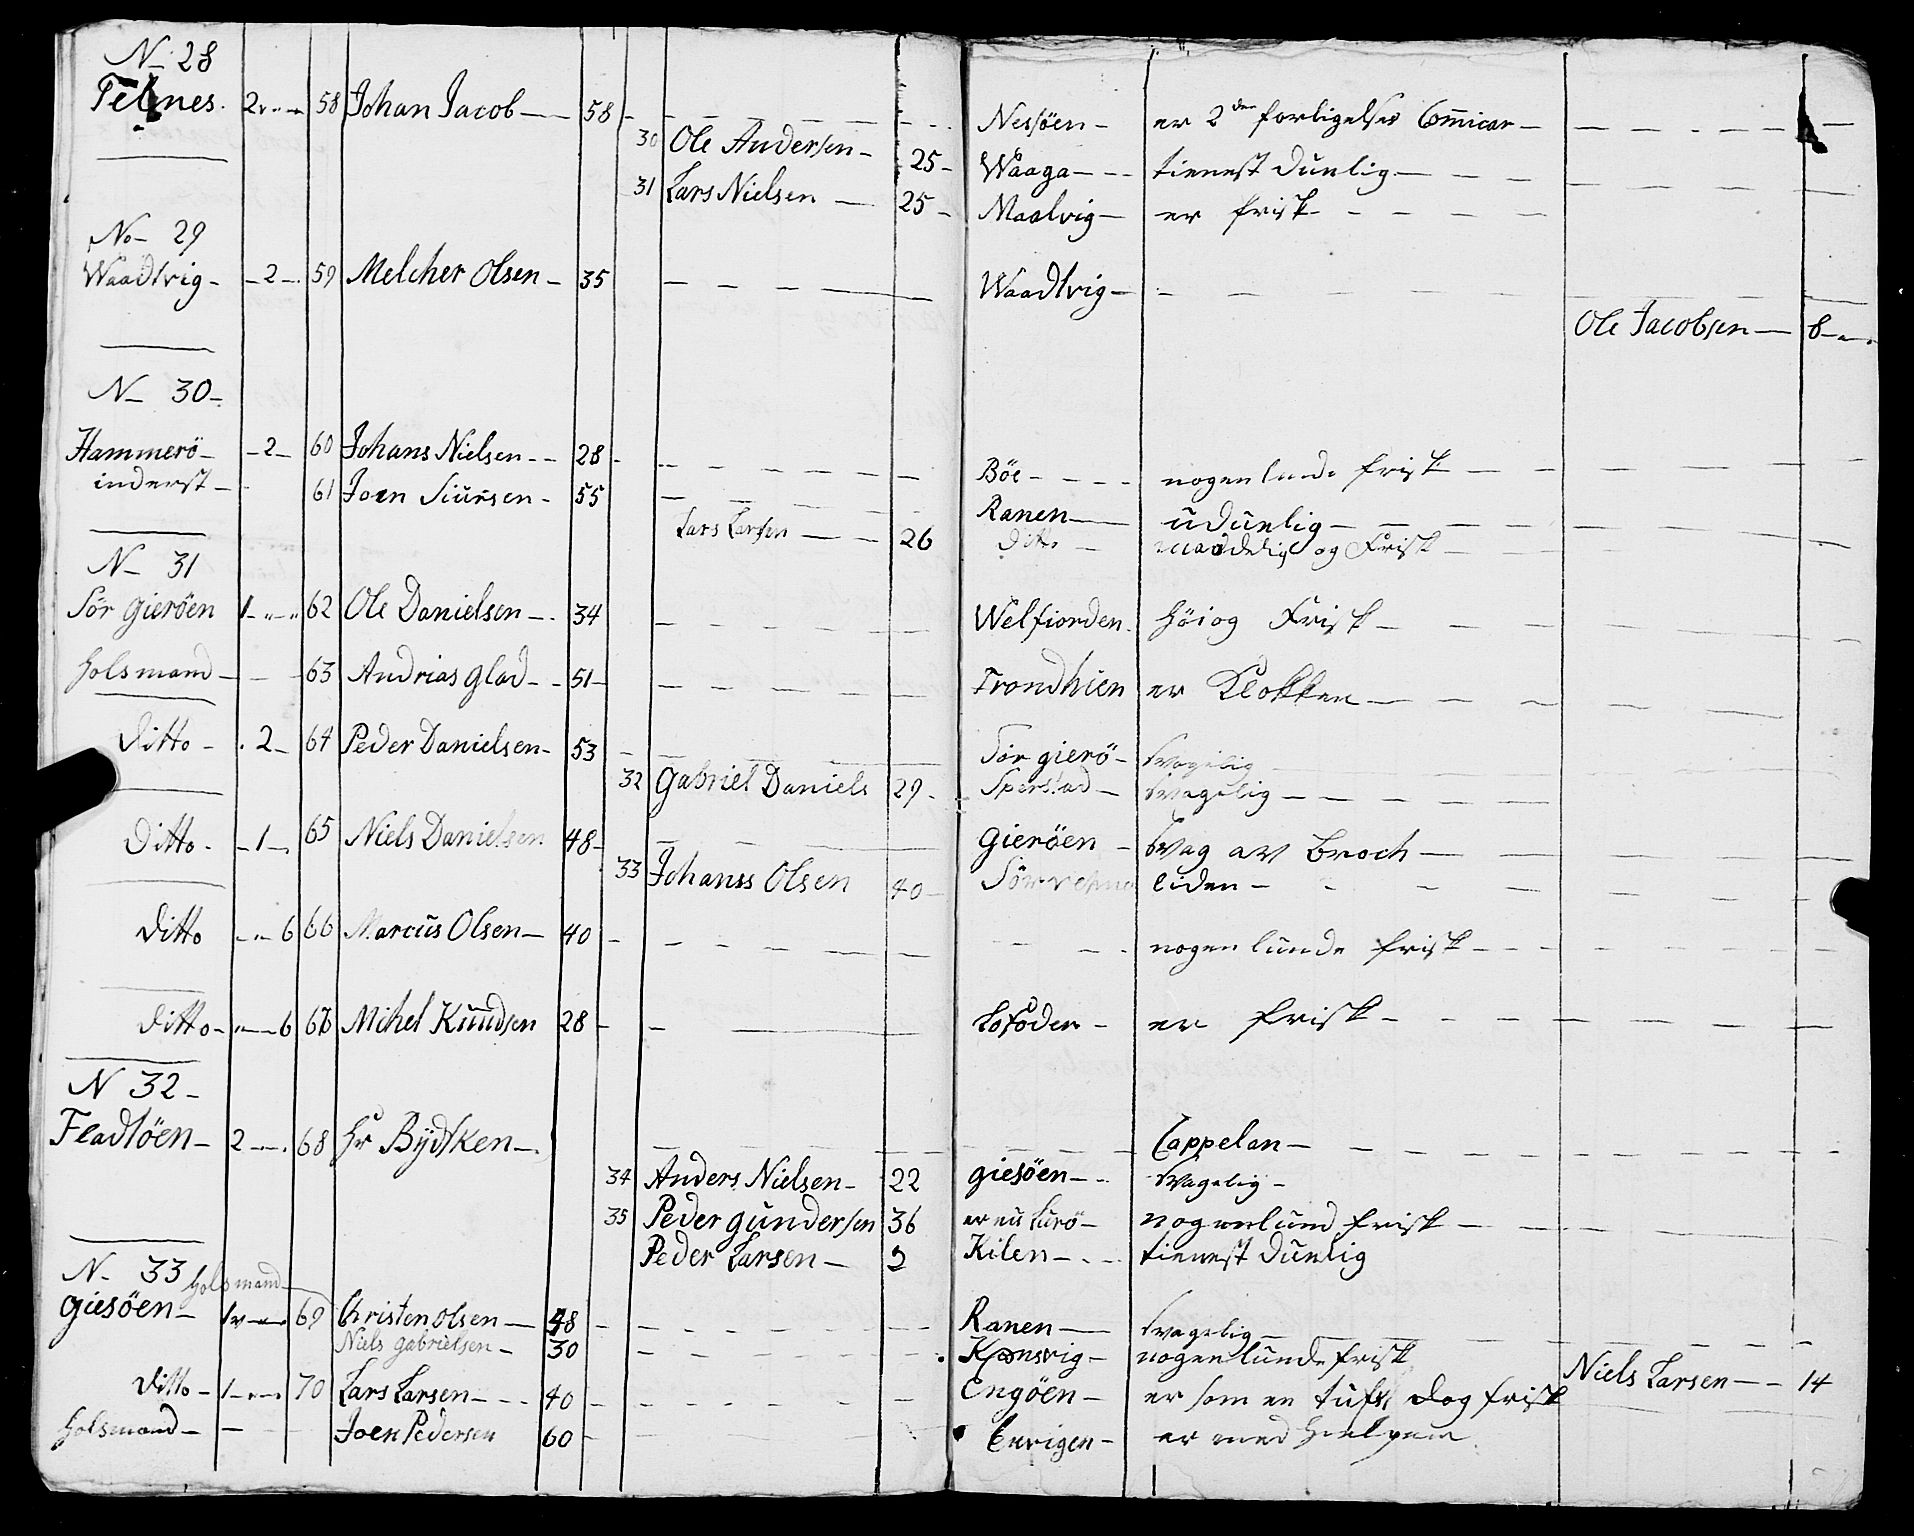 N- 28
Telnes. 2 58 Johan Jacob 58 Nessöen er 2den forligelses Commicær
30 Ole Andersen 25 Waaga tienest dunlig
31 Lars Nielsen 25 Maalvig er frisk
No- 29
Waadtvig 2 59 Melcher Olsen 35 Waadtvig
Ole Jacobsen 8
N- 30
Hammerö 2 60 Johans Nielsen 28 Böe nogenlunde frisk
inderst 61 Joen Siursen 55 Ranen udunlig
Lars Larsen 26 Ditto maadelig og Frisk
N- 31
Sör gieröen 1 62 Ole Danielsen 34 Welfiorden höi og Frisk
holsmand 63 Andrias glad 51 Trondhien er Klokker
Ditto 2 64 Peder Danielsen 53 Sör gierö svagelig
32 Gabriel Daniels 29 Sperstad svagelig
Ditto 1 65 Niels Danielsen 48 gieröen svag av broch
33 Johanss Olsen 40 liden
Ditto 6 66 Marcus Olsen 40 nogenlunde frisk
Ditto 6 67 Mikel Knudsen 28 Lofoden er frisk
N 32
Fladtöen 2 68 Hr Bydtken Cappelan
34 Anders Nielsen 22 giesöen svagelig
35 Peder gundersen 36 er nu Lurö nogenlund frisk
Peder Larsen 2 Kilen tienest dunlig
N- 33 holsmand
giesöen 1 69 Christen olsen 48 Ranen svagelig
Niels gabrielsen 30 nogenlunde frisk
Niels Larsen 14
Ditto 1 70 Lars Larsen 40 Engöen er som en tufs dog frisk
holsmand Joen Pedersen 60 er med